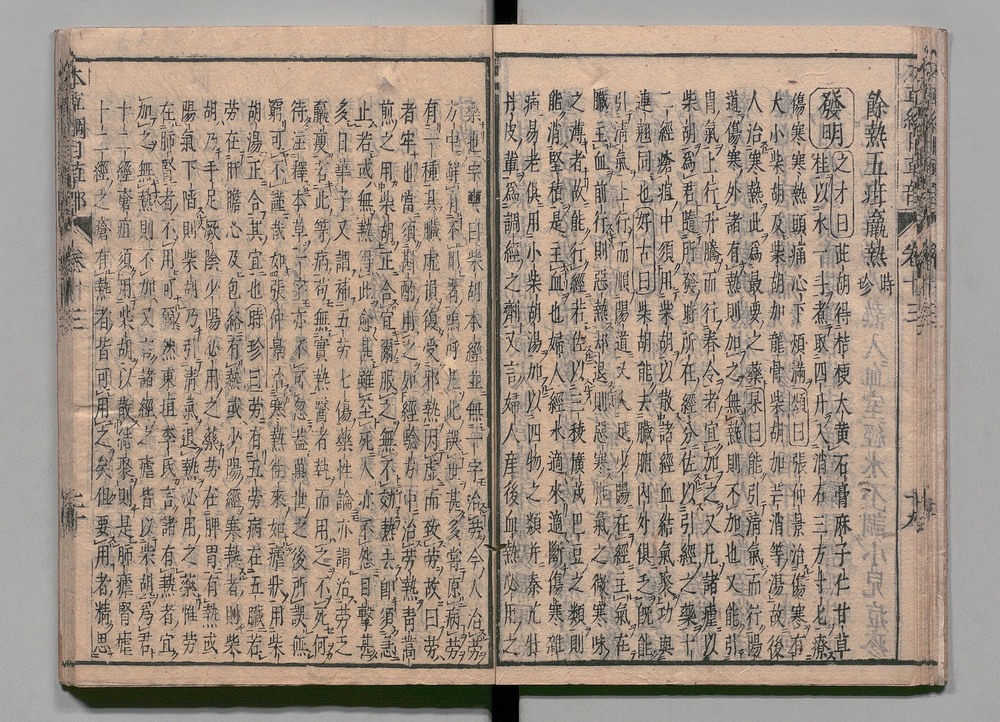 餘熱五疳羸熱時珍
發明之才曰此胡得桔梗大黃石膏麻子仁甘草
桂以水一斗煮取四升入消石三方寸匕療
傷寒寒熱頭痛心下煩滿頌曰張仲景治傷寒有
大小柴胡及柴胡加龍骨柴胡加芒消等湯故後
人治寒熱此爲最要之藥杲曰能引清氣而行陽
道傷寒外諸有熱則加之無熱則不加也又能引
胃氣上行升騰而行春令者宜加之又凡諸瘧以
柴胡爲君隨所發時所在經分佐以引經之藥十
二經瘡疽中須用柴胡以散諸經血結氣聚功與
連翹同也好古曰柴胡能去臟腑內外俱乏既能
引清氣上行而順陽道又入足少陽在經主氣在
臟主血前行則惡熱却退則惡寒惟氣之微寒味
之薄者故能行經若佐以三稜廣茂巴豆之類則
能消堅積是主血也婦人經水適來適斷傷寒雜
病易老俱用小柴胡湯加以四物之類并秦艽牡
丹皮輩爲調經之劑又言婦人産後血熱必用之
藥也宗奭曰柴胡本經並無一字治勞今人治勞
方中鮮有不用者嗚呼凡此誤世甚多嘗原病勞
有一種其臟虛損復受邪熱因虛而致勞故曰勞
者牢也當須斟酌用之如經驗方中治勞熱青蒿
煎之用柴胡正合宜爾服之無不效熱去即須急
止若或無熱得此愈甚雖至死人亦不怨目擊甚
多日華子又謂補五勞七傷藥性論亦謂治勞乏
羸瘦若此等病苟無實熱醫者執而用之不死何
待注釋本草一字亦不可忽蓋萬世之後所誤無
窮可不謹哉如張仲景治寒熱往來如瘧狀用柴
胡湯正合其宜也時珍曰勞有五勞病在五臟若
勞在肝膽心及包絡有熱或少陽經寒熱者則柴
胡乃手足厥陰少陽必用之藥勞在脾胃有熱或
陽氣下陷則柴胡乃引清氣退熱必用之藥惟勞
在肺腎者不用可爾然東垣李氏言諸有熱者宜
加之無熱則不加又言諸經之瘧皆以柴胡爲君
十二經瘡疽須用柴胡以散結聚則是肺瘧腎瘧
十二經之瘡有熱者皆可用之矣但要用者精思